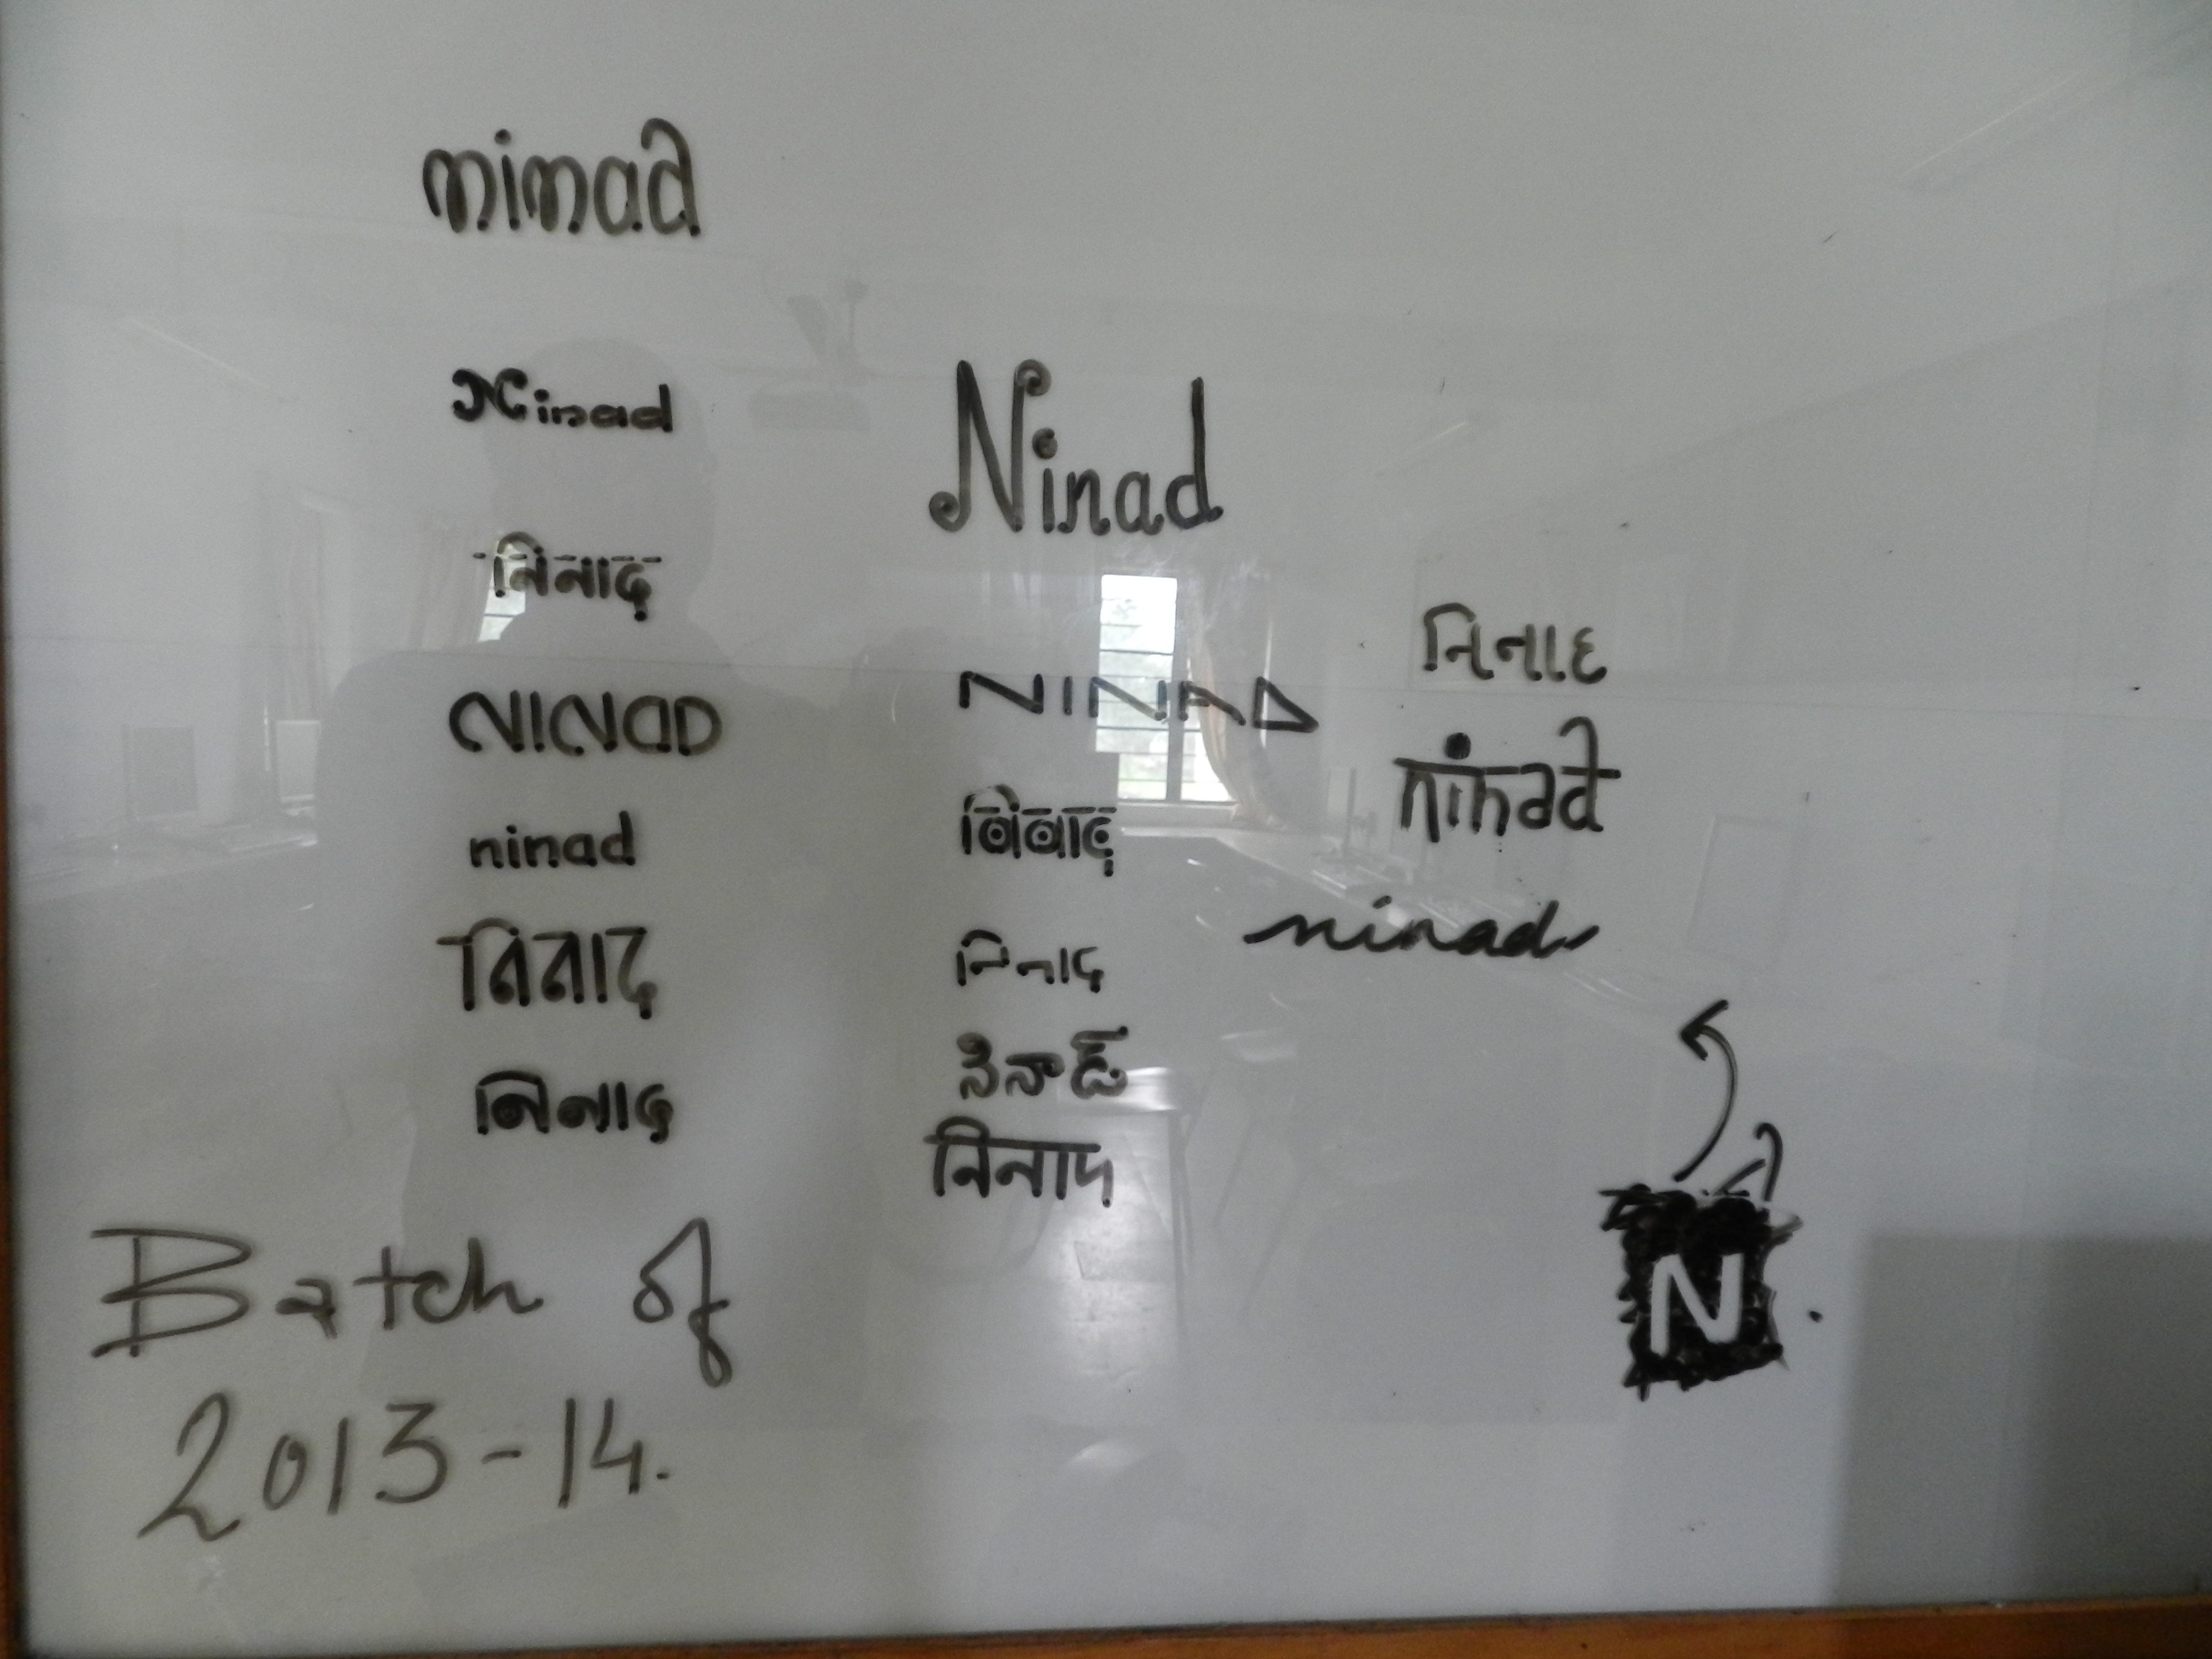 ninad
Ninad
निनाद
NINAD
ninad
निनाद
निनाद
Ninad
NINAD
निनाद
निनाद
నినాడ్
निनाद
નિનાદ
ninad
ninad
N
Batch of
2013-14.